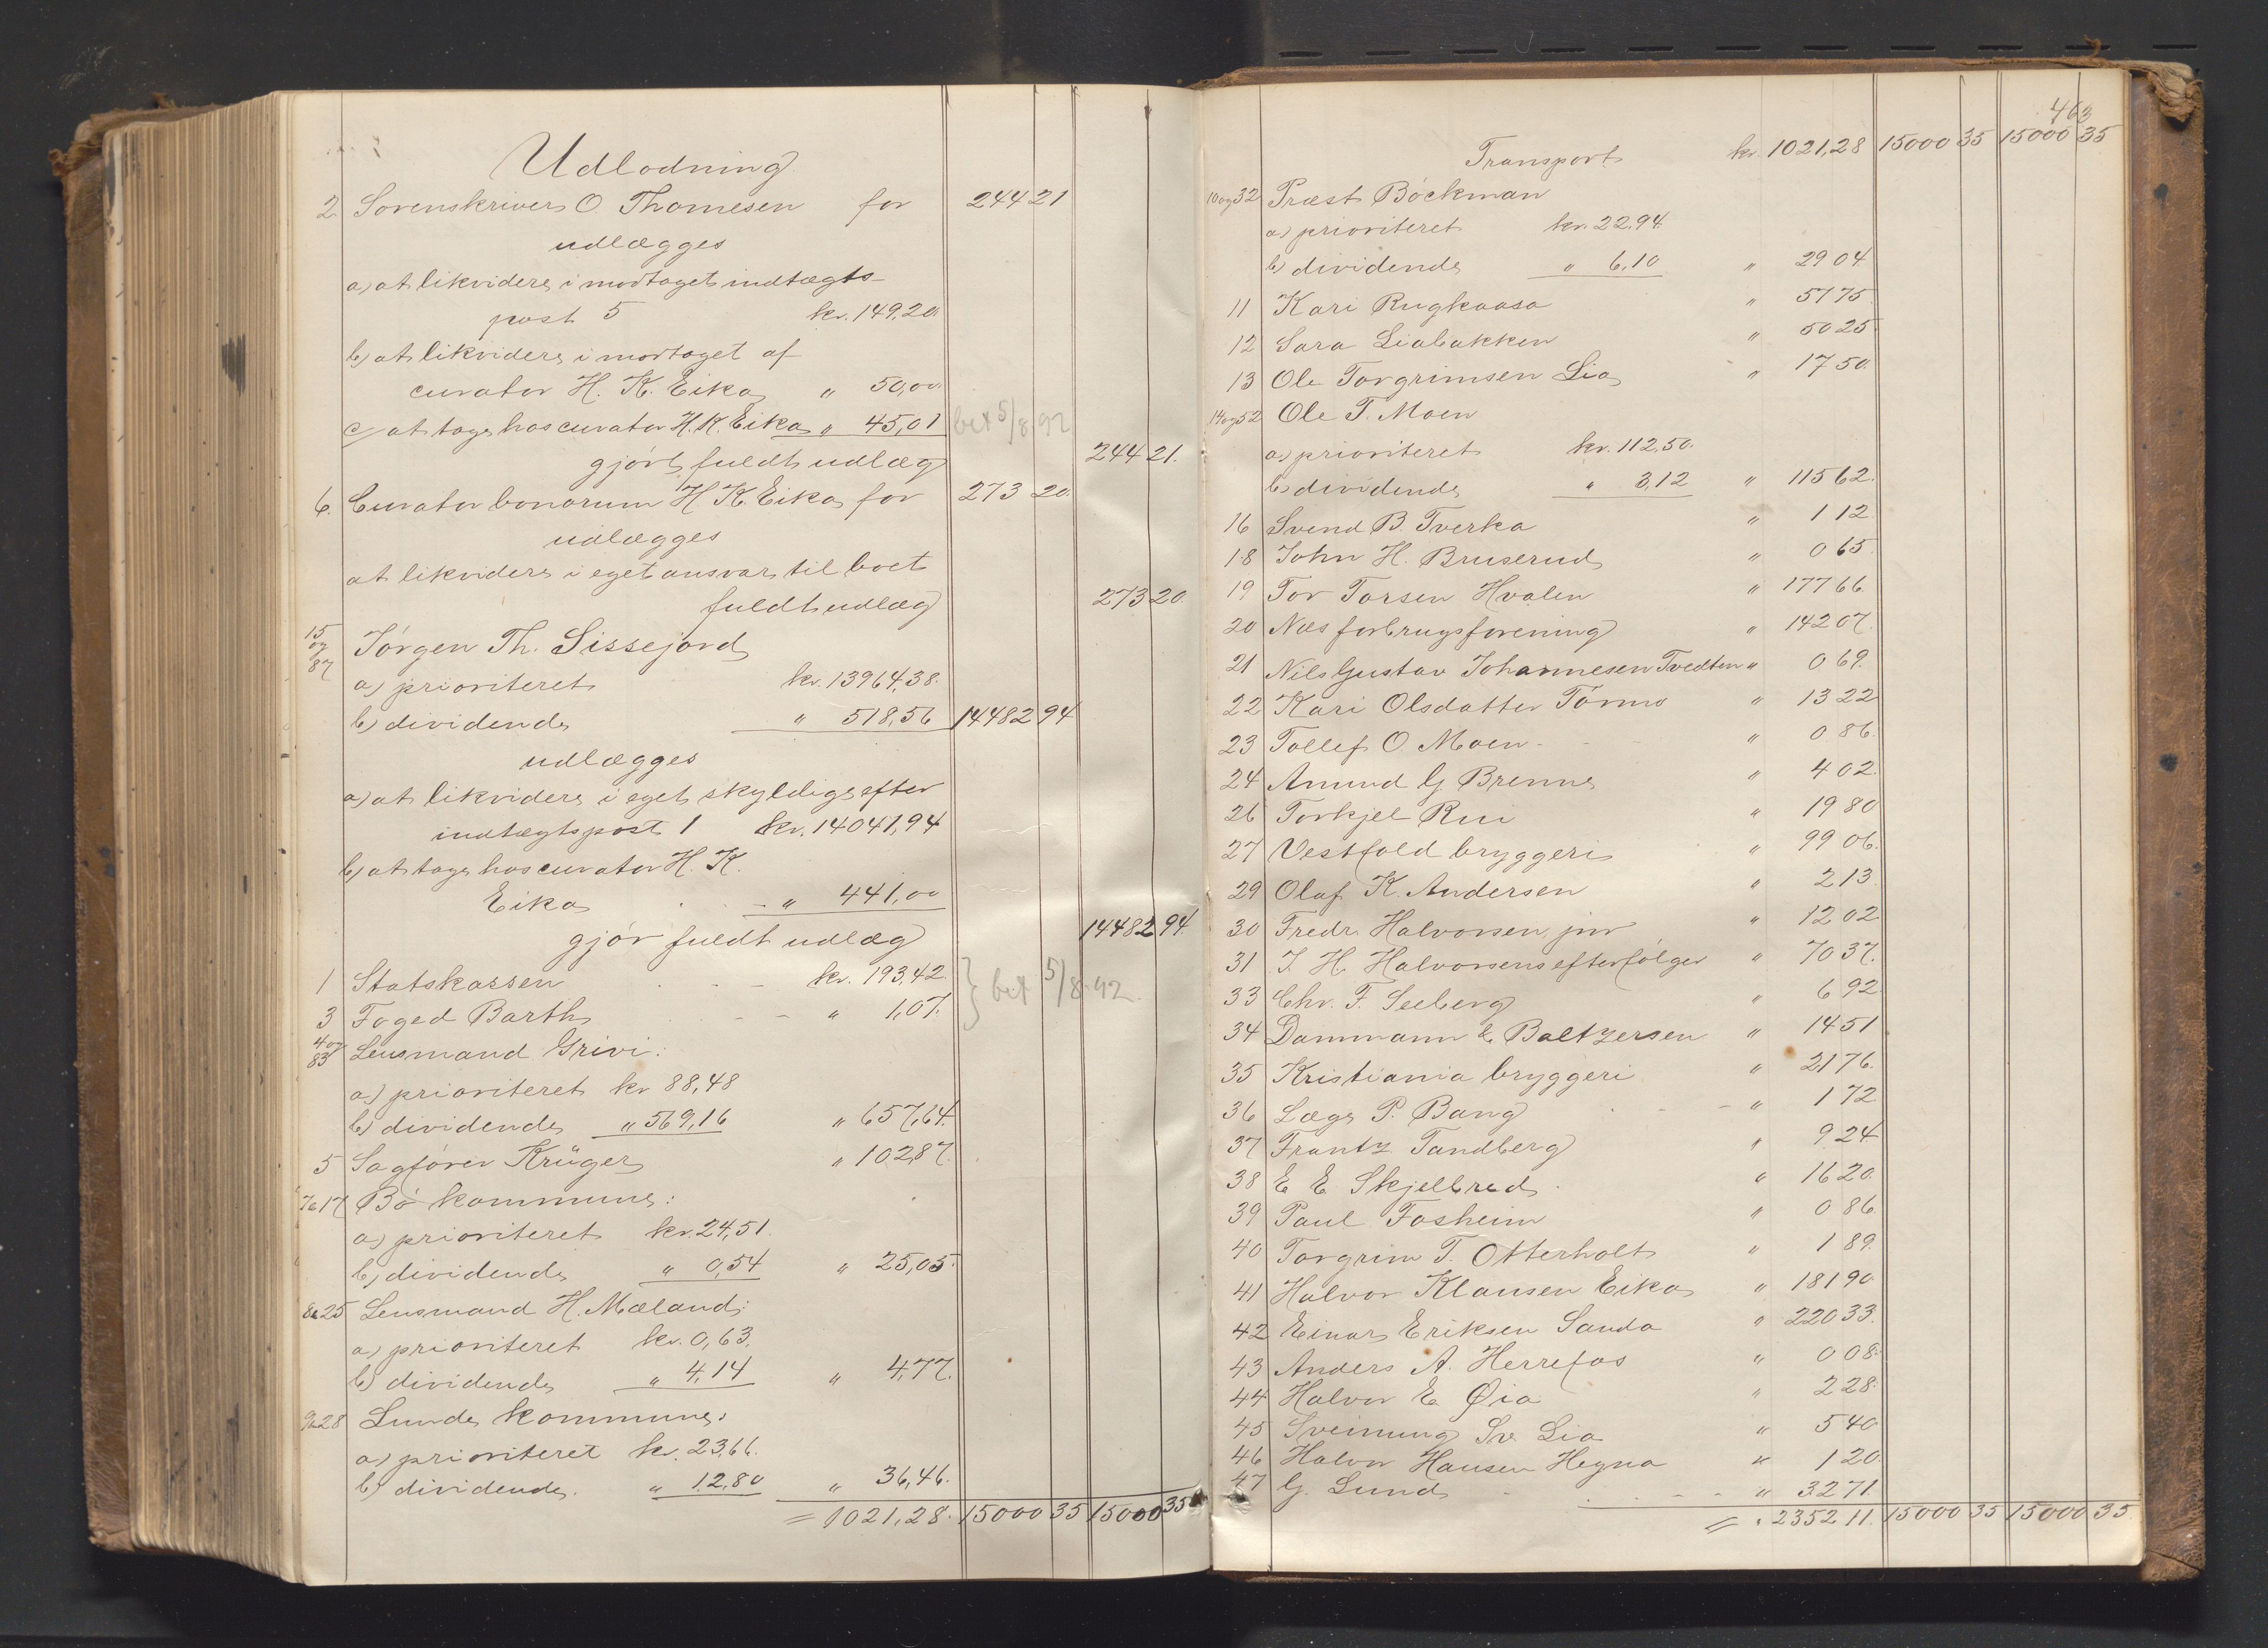 Udlodning
2. Sorenskriver O Thomesen for 244 21
udlægges
a) at likvidere i modtaget indtægts-
post 5 kr. 149,20.
b) at likvidere i modtaget af
curator H. K. Eika " 50,00
c) at tage hos curator H. K. Eika " 45,01 bet 5/8 92
gjört fuldt udlæg 244 21.
6. Curator bonorum H. K. Eika for 273 20.
udlægges
at likvidere i eget ansvar til boet
fuldt udlæg 273 20.
15 og 87 Jörgen Th. Sissejord
a) prioriteret kr. 13964,38.
b) dividende " 518,56 14482 94
udlægges
a) at likvidere i eget skyldige efter
indtægtspost 1 kr. 14041,94
b) at tage hos curator H. K.
Eika - " 441,00
gjör fuldt udlæg 14482 94.
1 Statskassen kr. 193,42. } bet 5/8 92.
3 Foged Barth " 1,07.
4 og 83 Lensmand Grivi:
a) prioriteret kr 88,48
b) dividende " 569,16 " 657,64.
5 Sagförer Krüger " 102,87.
7 o 17 Bö kommune:
a) prioriteret kr. 24,51.
b) dividende " 0,54 " 25,05.
8 o 25 Lensmand H. Mæland:
a) prioriteret kr. 0,63.
b) dividende " 4,14 " 4,77.
9 o 28 Lunde kommune:
a) prioriteret kr. 23,66.
b) dividende. " 12,80 " 36,46.
= 1021,28. 15000 35 15000 35
463
Transport kr. 1021,28 15000 35 15000 35
10 og 32 Præst Böckman
a) prioriteret kr. 22,94.
b) dividende " 6,10 " 29 04
11 Kari Rugkaasa " 57 75.
12 Sara Liabakken " 50 25.
13 Ole Torgrimsen Lia " 17 50.
14 og 52 Ole T. Moen
a) prioriteret kr. 112,50.
b) dividende " 3,12 " 115 62.
16 Svend B. Tverka " 1 12.
18 John H. Bruserud " 0 65.
19 Tor Torsen Hvalen " 177 66.
20 Næs forbrugsforening " 142 07.
21 Nils Gustav Johannesen Tvedten " 0 69.
22 Kari Olsdatter Tönno " 13 22
23 Tollef O. Moen - - " 0 86.
24 Amund G Brenne " 4 02.
26 Torkjel Rui " 19 80
27 Vestfold bryggeri " 99 06.
29 Olaf K. Andersen " 2 13.
30 Fredr. Halvorsen jnr " 12 02.
31 J. H. Halvorsens efterfölger " 70 37.
33 Chr. F. Seeberg " 6 92
34 Dammann & Baltzersen " 14 51
35 Kristiania bryggeri " 21 76.
36 Læge P. Bang - - " 1 72
37 Frantz Tandberg " 9 24
38 E E Skjelbred " 16 20.
39 Paul Fosheim " 0 86.
40 Torgrim T. Otterholt " 1 89.
41 Halvor Klausen Eika " 181 90.
42 Einar Eriksen Sanda " 220 33.
43 Anders A. Herrefos " 0 08.
44 Halvor E Øia " 2 28.
45 Sveinung Sv. Lia " 5 40
46 Halvor Hansen Hegna " 1 20.
47 G. Lund - - - " 32 71
= " 2352 11. 15000 35 15000 35.